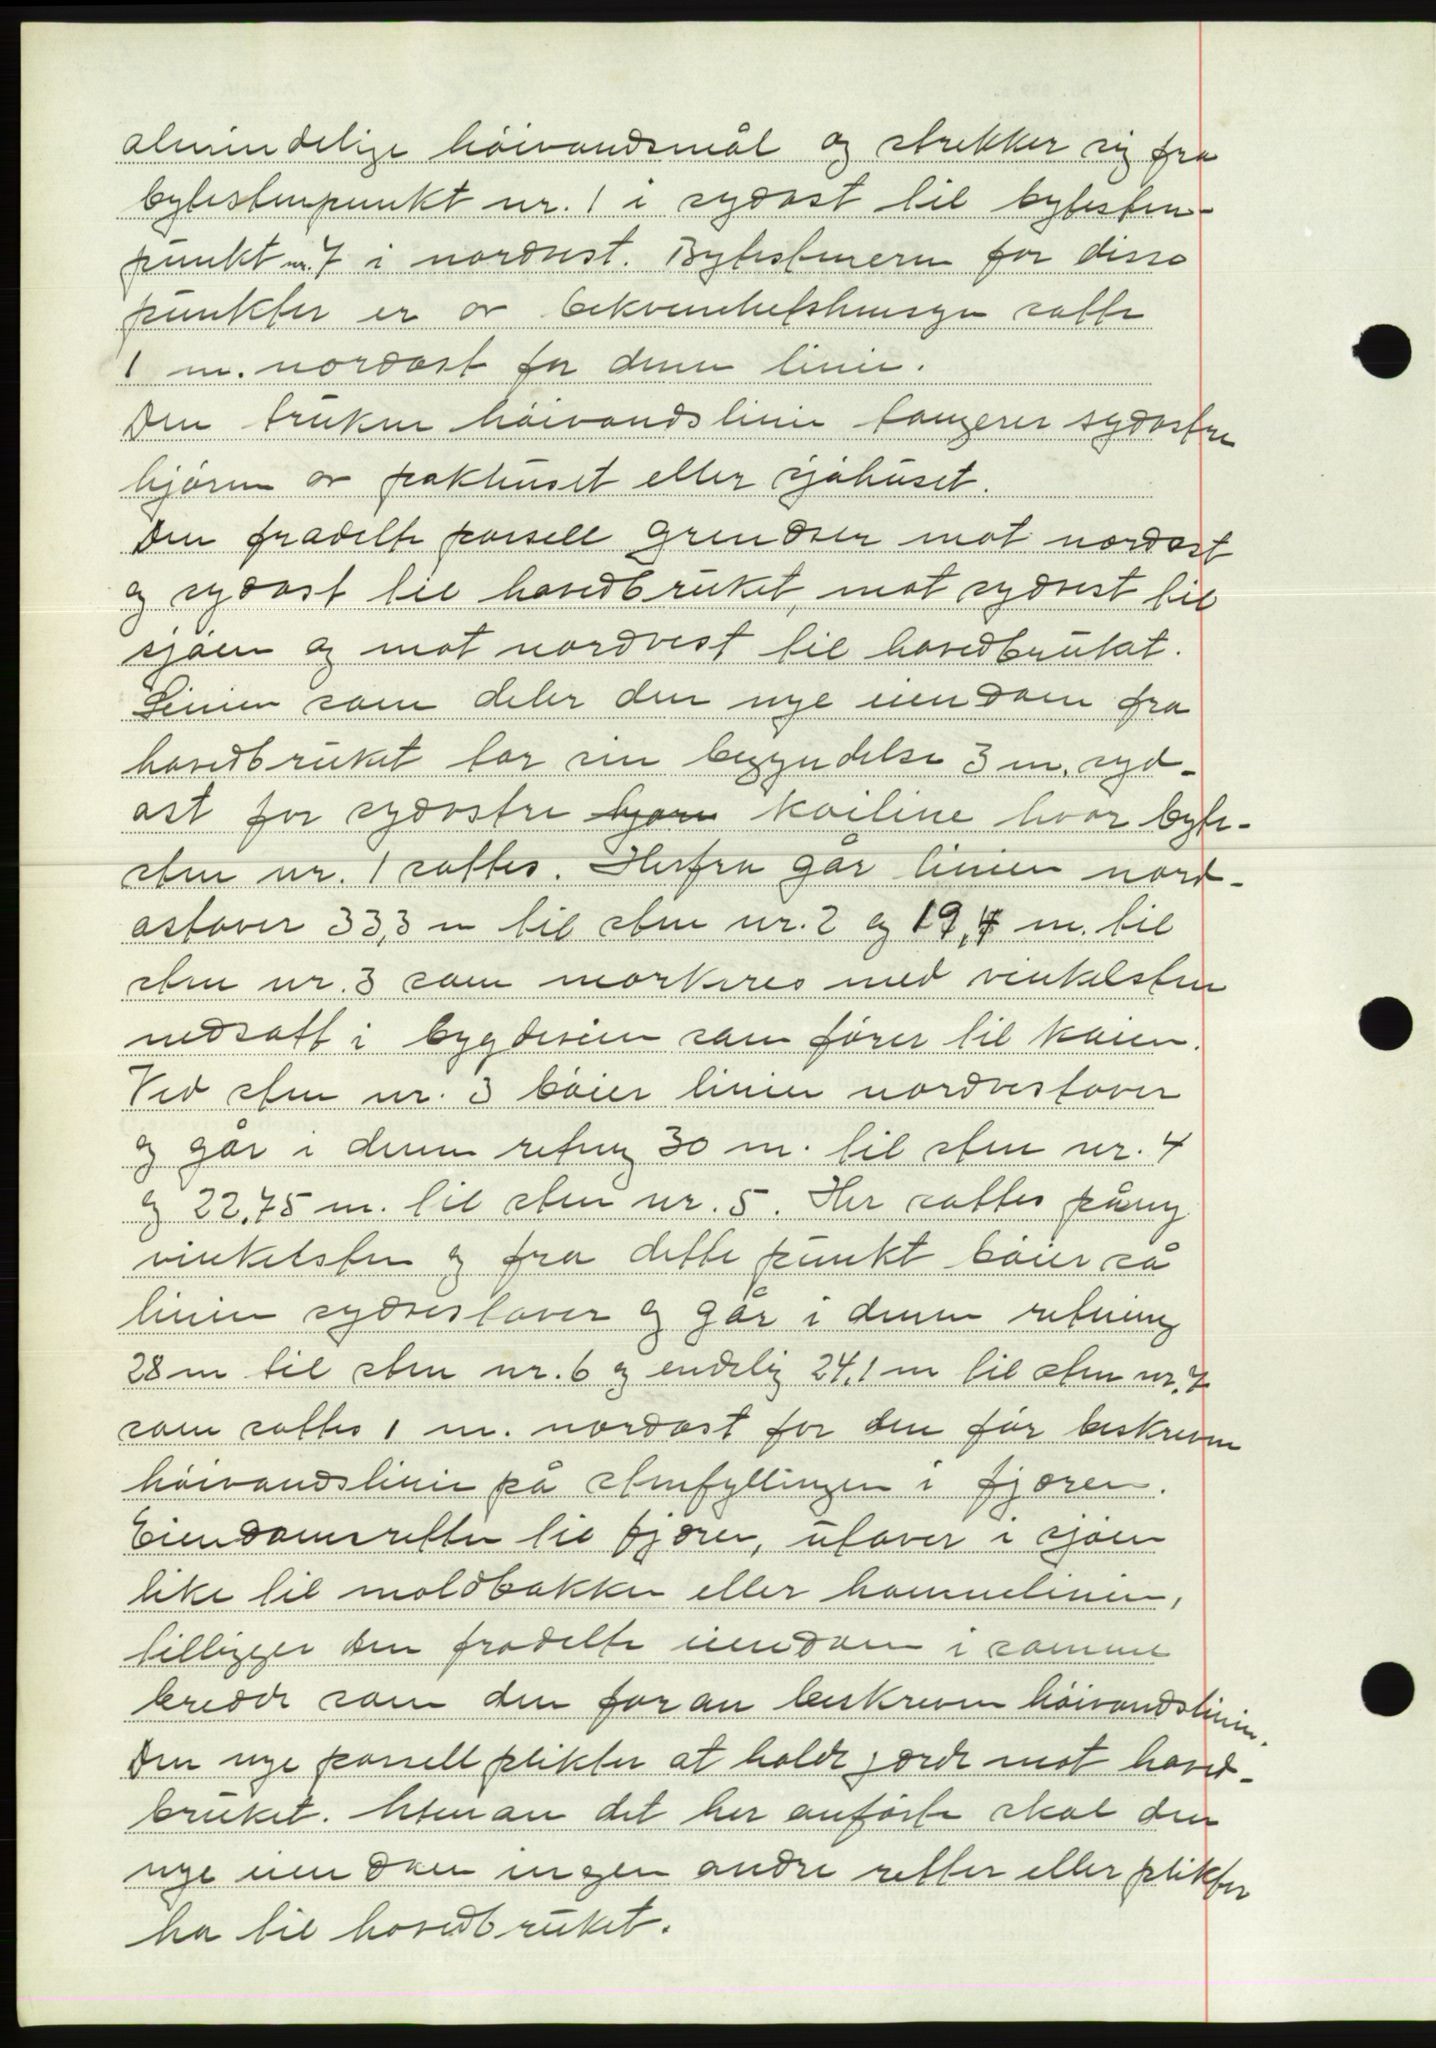 almindelige höivandsmål og strekker sig fra
bytestenpunkt nr. 1 i sydøst til bytesten-
punkt nr. 7 i nordvest. Bytestenerne for disse
punkter er av bekvemhetshensyn satte
1 m. nordøst for denne linie.
Den trukne höivandslinie tangerer sydøstre
hjörne av pakhuset eller sjöhuset.
Den fradelte parsell grendser mot nordøst
og sydøst til hovedbruket, mot sydvest til
sjöen og mot nordvest til hovedbruket.
Linien som deler den nye eiendom fra
hovedbruket tar sin begyndelse 3 m. syd-
øst for sydøstre hjörne kailine hvor byte-
sten nr. 1 sattes. Herfra går linien nord-
østover 33,3 m til sten nr. 2 og 19,4 m. til
sten nr. 3 som markeres med vinkelsten
nedsatt i bygdeveien som förer til kaien.
Ved sten nr. 3 böier linien nordvestover
og går i denne retning 30 m. til sten nr. 4
og 22,75 m. til sten nr. 5. Her sattes påny
vinkelsten og fra dette punkt böier så
linien sydvestover og går i denne retning
28 m til sten nr. 6 og endelig 24,1 m til sten nr. 7
som sattes 1 m. nordøst for den för beskrevne
höivandslinie på stenfyllingen i fjæren.
Eiendomsretten til fjæren, utover i sjöen
like til moldbakken eller havnelinien,
tilligger den fradelte eiendom i samme
bredde som den foran beskrevne höivandslinie.
Den nye parsell plikter at holde gjerde mot hoved-
bruket. Utenom det her anförte skal den
nye eiendom ingen andre retter eller plikter
ha til hovedbruket.